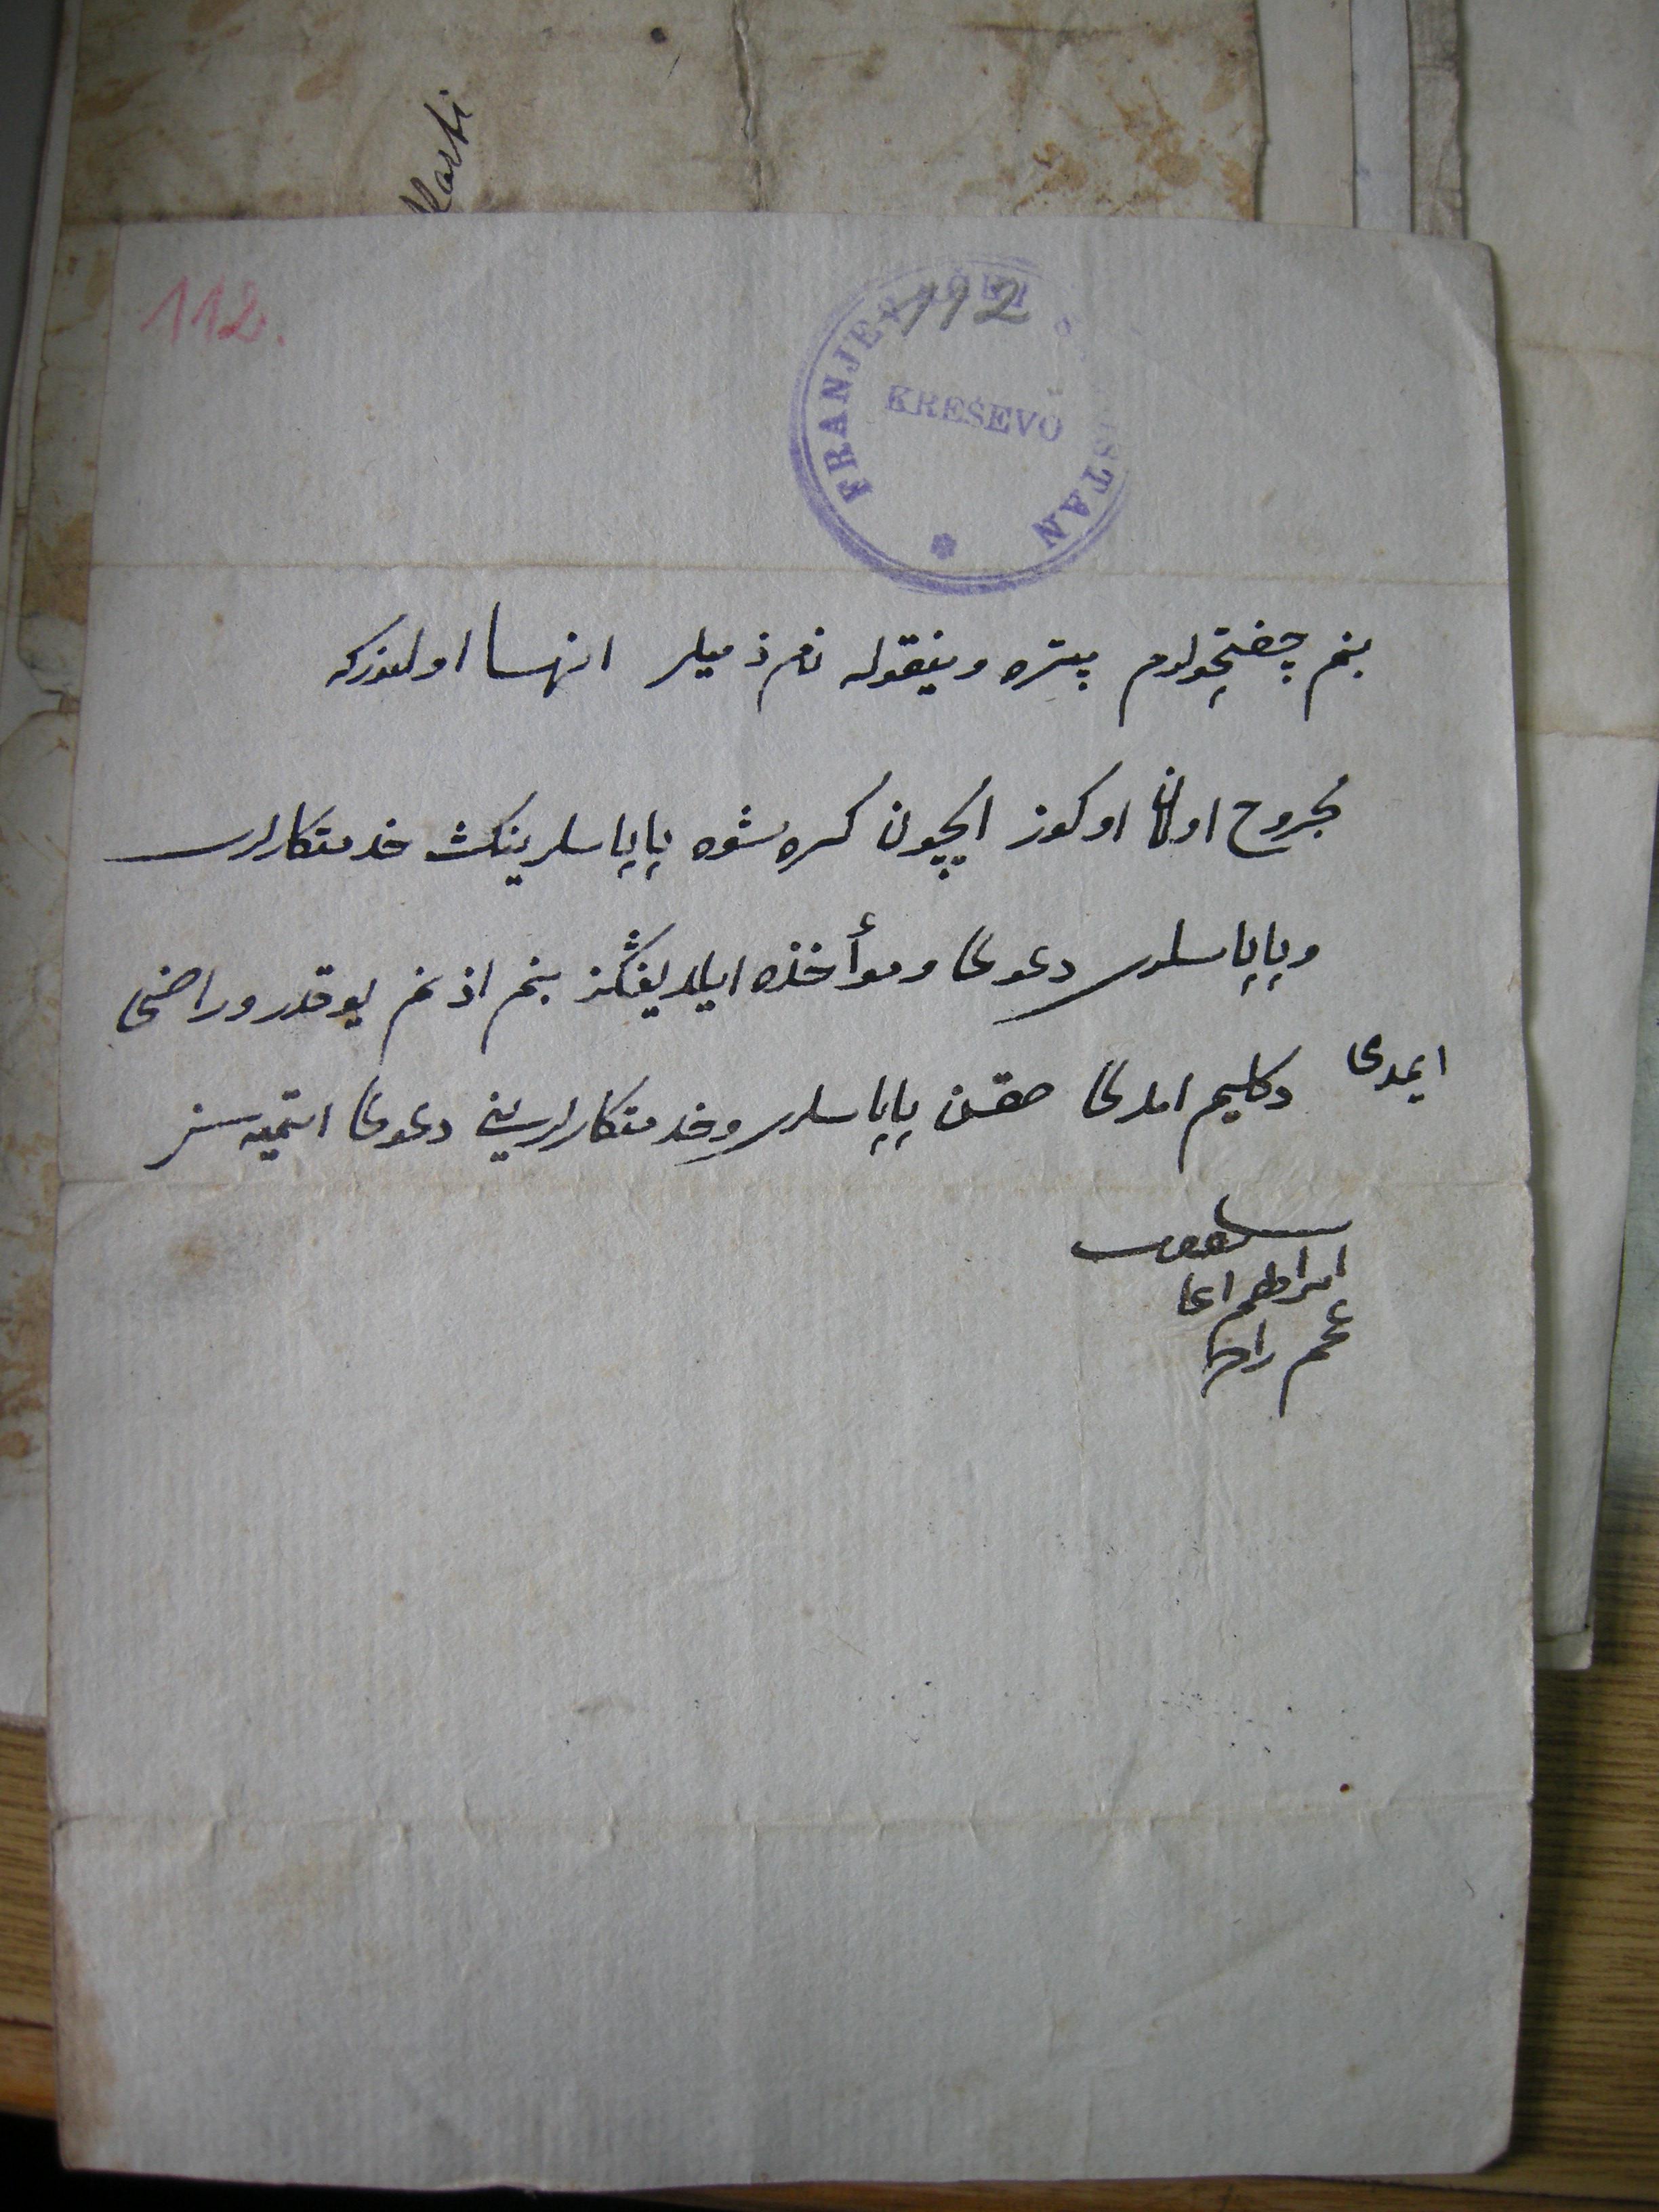 112.
112
FRANJEVAČKI SAMOSTAN
KREŠEVO
بنم چفتجیلرم پتره و نیقوله نام ذمیلر انها اولنورکه
مجروح اولان اوکوز ایچون کره شوه پاپاسلرینك خدمتکارلری
و پاپاسلری دعوی و مؤاخذه ایلدیفکز بنم اذنم یوقدر و راضی
ایمدی دکلیم امدی صقن پاپاسلری و خدمتکارلرینی دعوی ایتمیه سز
ابراهیم اغا